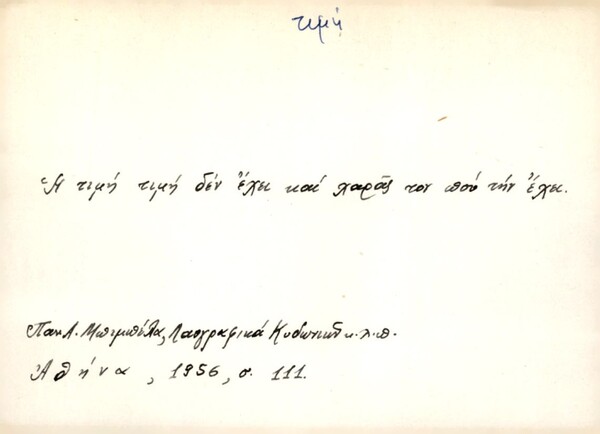 τιμή
Ἡ τιμή τιμή δέν ἔχει καί χαρᾶς τον πού τήν ἔχει.
Παν. Λ. Μπιμπέλα, Λαογραφικά Κυδωνιῶν κ.λ.π.
Ἀθήνα, 1956, σ. 111.